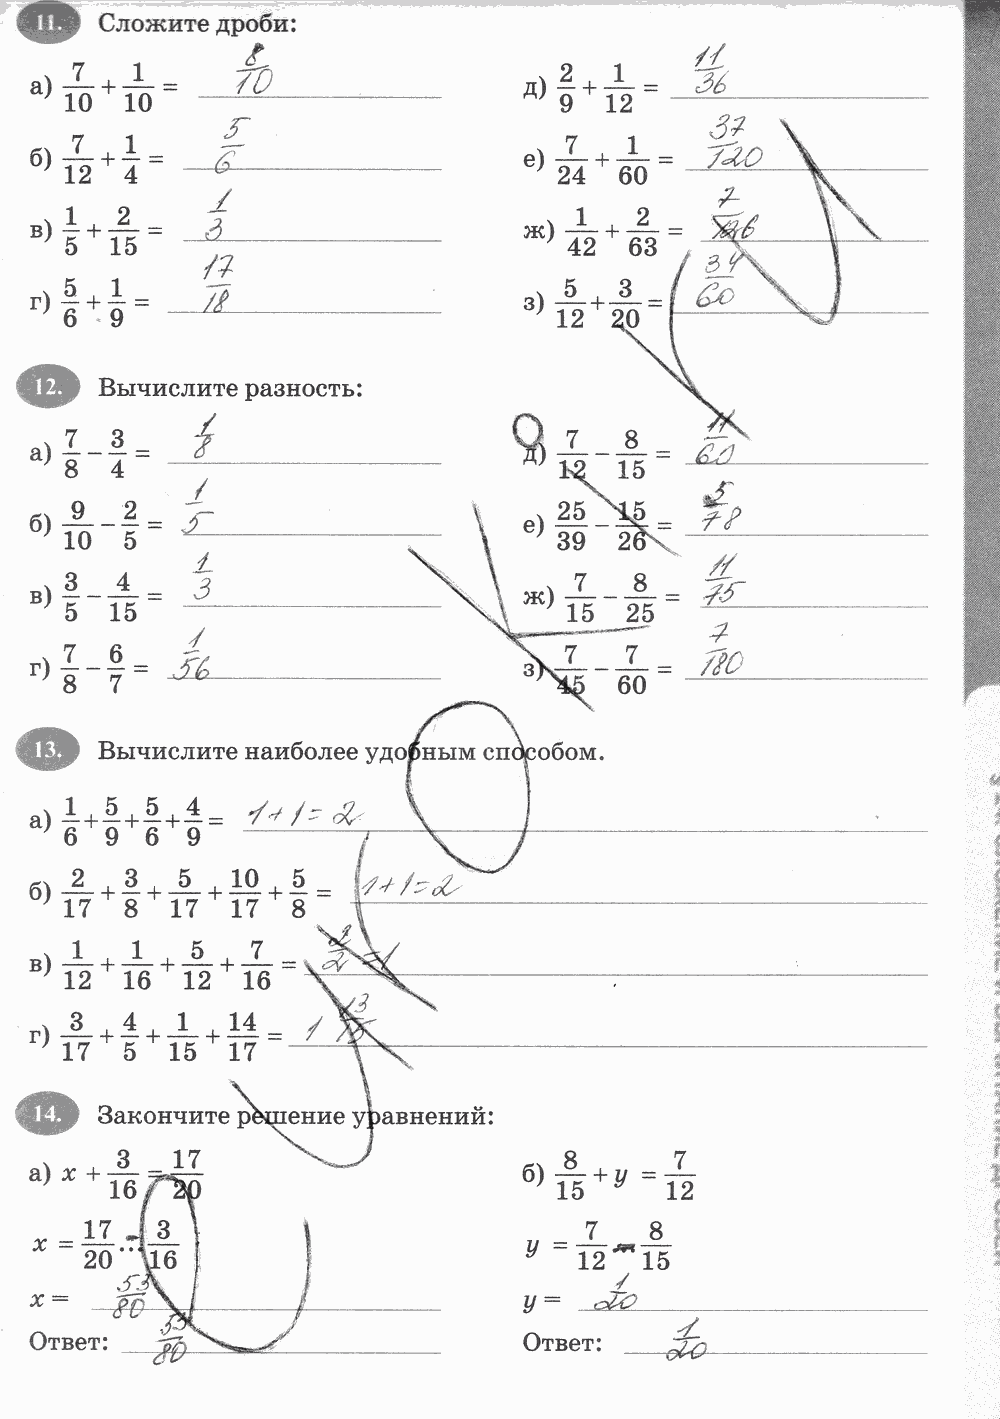 11. Сложите дроби:
а) 7/10 + 1/10 = 8/10
б) 7/12 + 1/4 = 5/6
в) 1/5 + 2/15 = 1/3
г) 5/6 + 1/9 = 17/18
д) 2/9 + 1/12 = 11/36
е) 7/24 + 1/60 = 37/120
ж) 1/42 + 2/63 = 7/126
з) 5/12 + 3/20 = 34/60
12. Вычислите разность:
а) 7/8 − 3/4 = 1/8
б) 9/10 − 2/5 = 1/5
в) 3/5 − 4/15 = 1/3
г) 7/8 − 6/7 = 1/56
д) 7/12 − 8/15 = 11/60
е) 25/39 − 15/26 = 5/78
ж) 7/15 − 8/25 = 11/75
з) 7/45 − 7/60 = 7/180
13. Вычислите наиболее удобным способом.
а) 1/6 + 5/9 + 5/6 + 4/9 = 1+1=2
б) 2/17 + 3/8 + 5/17 + 10/17 + 5/8 = 1+1=2
в) 1/12 + 1/16 + 5/12 + 7/16 = 2/2 =1
г) 3/17 + 4/5 + 1/15 + 14/17 = 1 13/15
14. Закончите решение уравнений:
а) x + 3/16 = 17/20
x = 17/20 ... 3/16
x = 53/80
Ответ: 53/80
б) 8/15 + y = 7/12
y = 7/12 − 8/15
y = 1/20
Ответ: 1/20